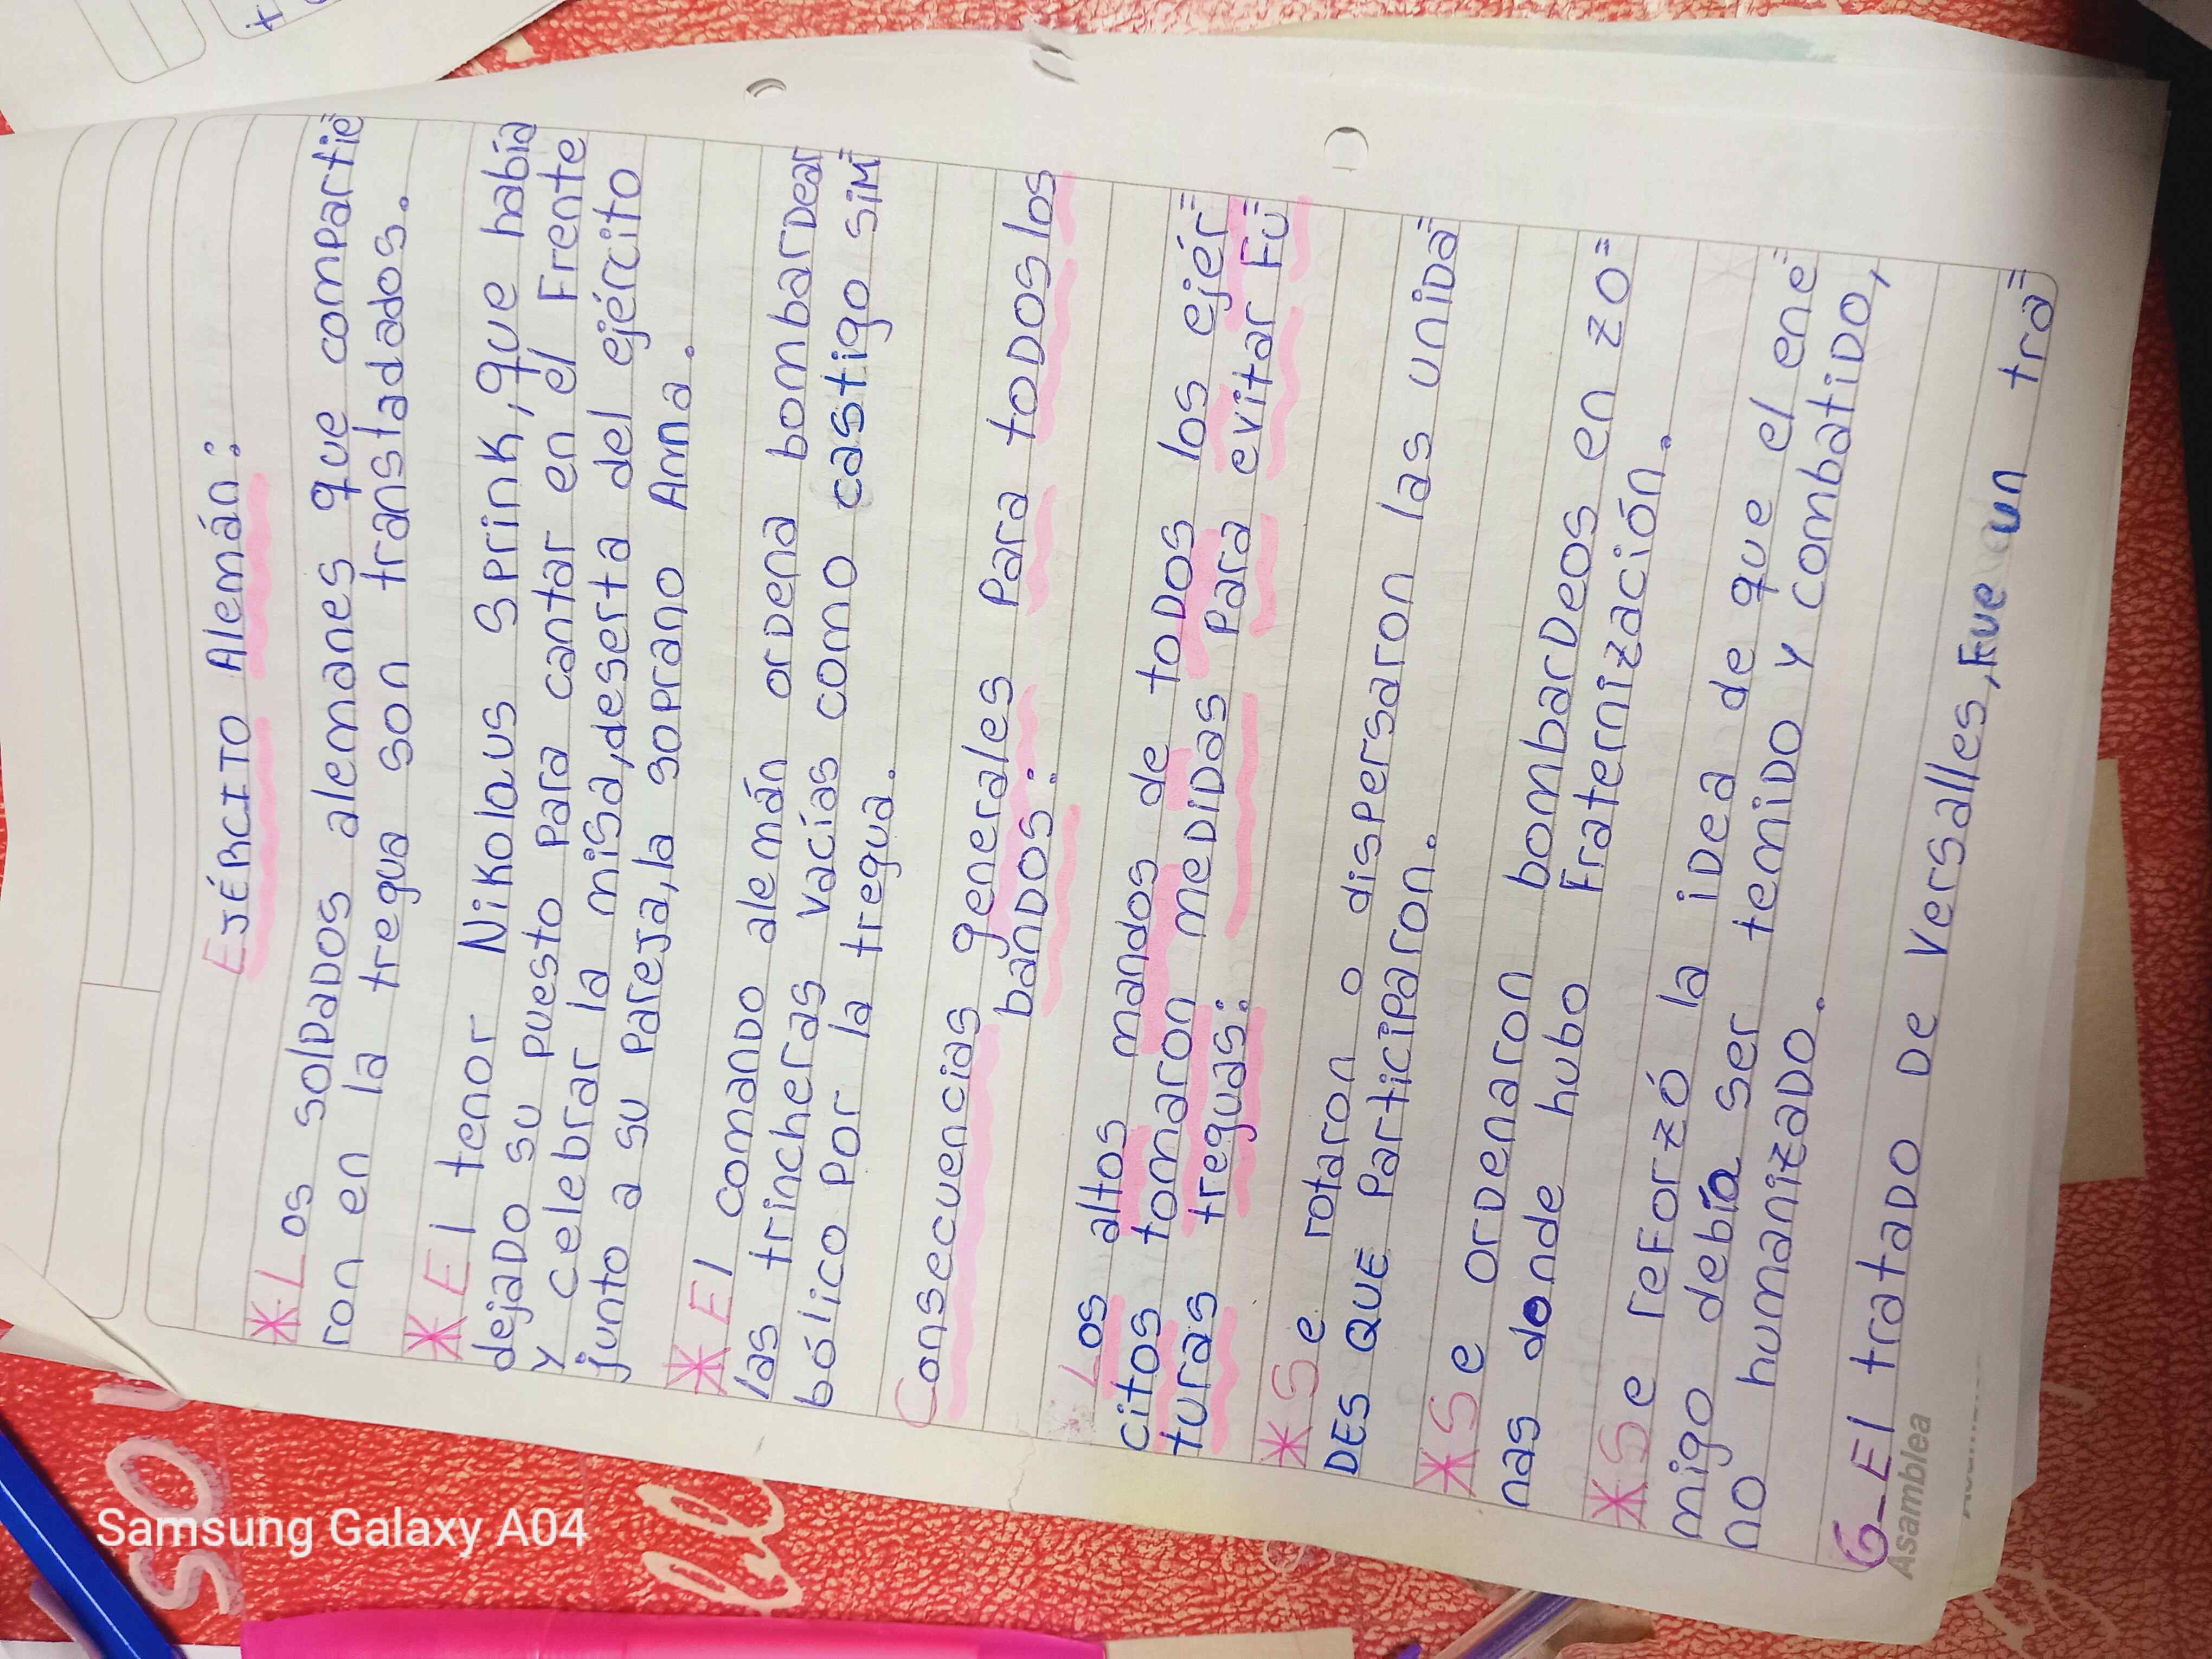 EJÉRCITO Alemán:
* Los solDaDos alemanes que compartie=
ron en la tregua son transladados.
* El tenor Nikolaus Sprink, que había
dejaDo su puesto para cantar en el Frente
y celebrar la misa, deserta del ejército
junto a su pareja, la soprano Anna.
* El comanDo alemán orDena bombarDear
las trincheras vacías como castigo sim=
bólico por la tregua.
Consecuencias generales Para toDos los
banDos:
Los altos mandos de toDos los ejér=
citos tomaron meDiDas Para evitar Fu=
turas treguas:
* Se rotaron o dispersaron las uniDa=
DES QUE Participaron.
* Se orDenaron bombarDeos en zo=
nas donde hubo Fraternización.
* Se reForzó la iDea de que el ene=
migo debía ser temiDo y combatiDo,
no humanizaDo.
6_El trataDo De Versalles, Fue un tra=
Asamblea
Samsung Galaxy A04